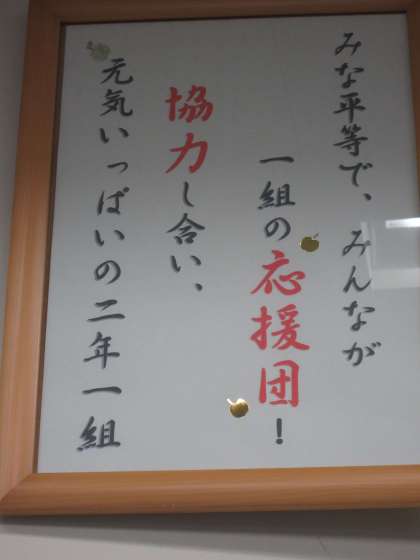 みな平等で、みんなが
一組の応援団！
協力し合い、
元気いっぱいの二年一組